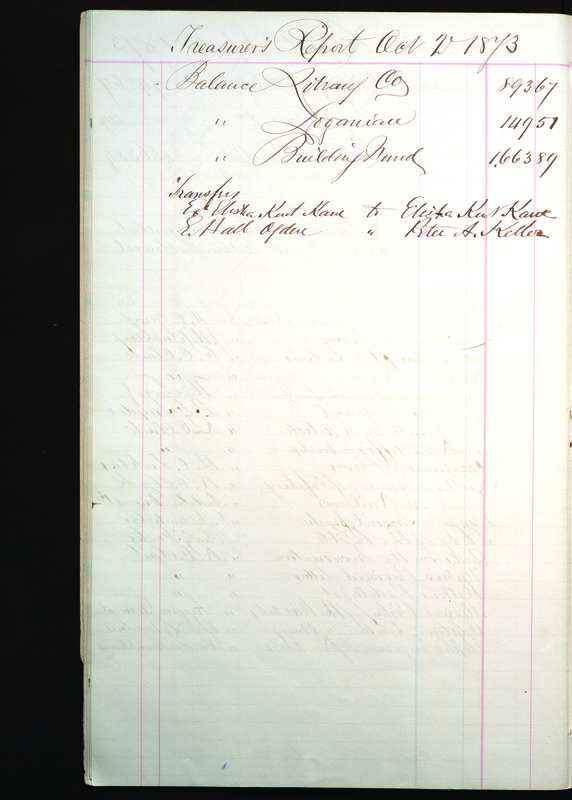 Treasurer's Report Oct 2 1873
Balance Library Co 893 67
" Loganian 149 51
" Building Fund 1,663 89
Transfers
Ex Elisha Kent Kane to Elisha Kent Kane
E. Hall Ogden " Peter A. Keller